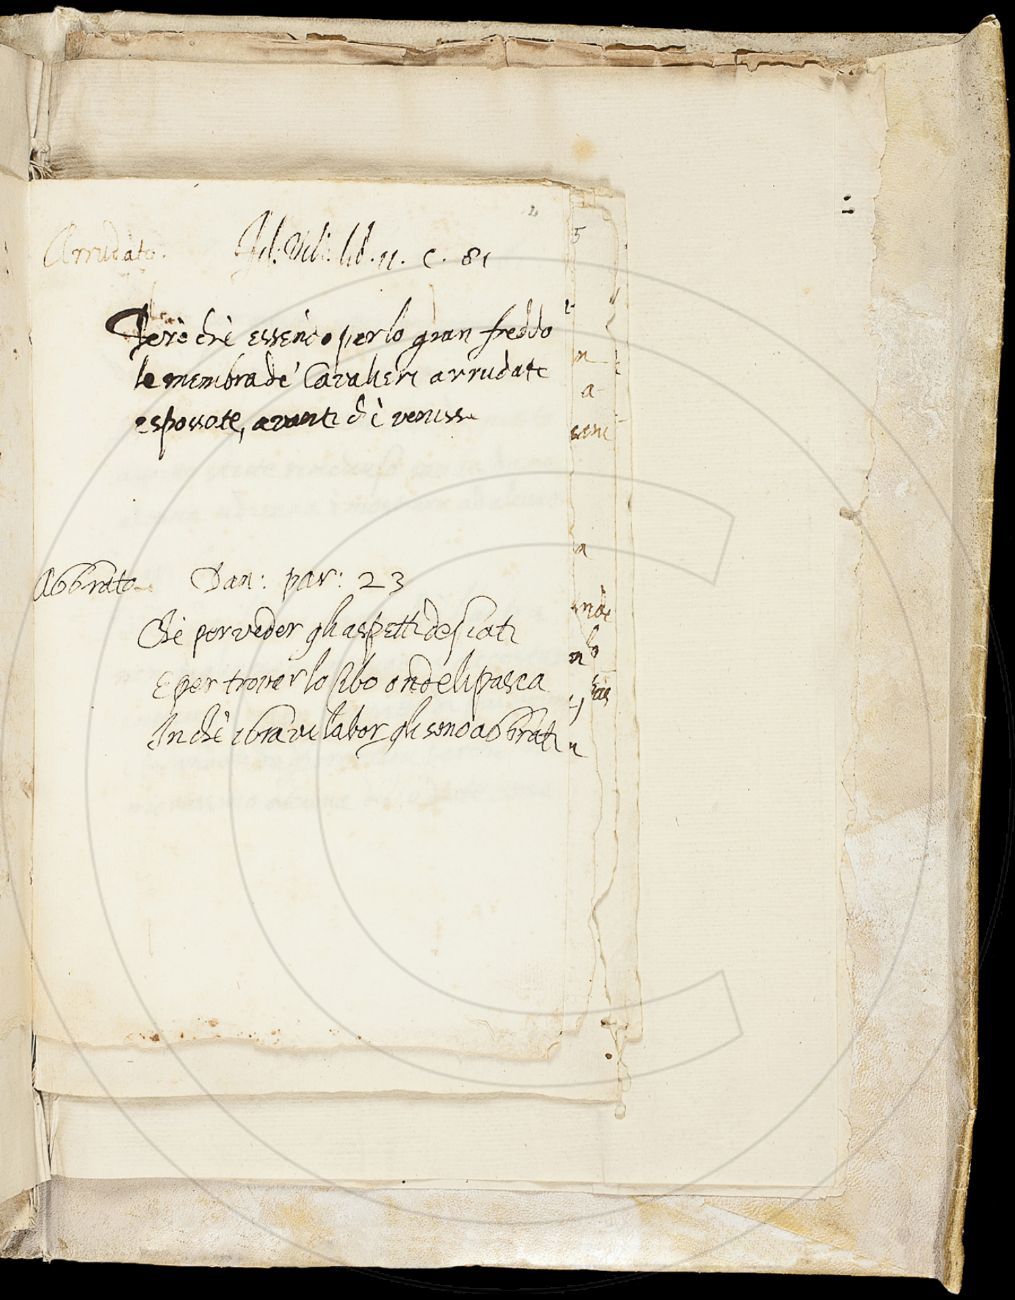 2
Arrudato. Fil: Vil: lib. 11. c. 81
Però chè essendo per lo gran freddo
le membra de' Cavalieri arrudate
e spossate, avanti chè venisse
Aggrato Dan: par: 23
Chè per veder gli aspetti desiati
E per trovar lo cibo onde li pasca
In chè i gravi labor gli sono aggrati